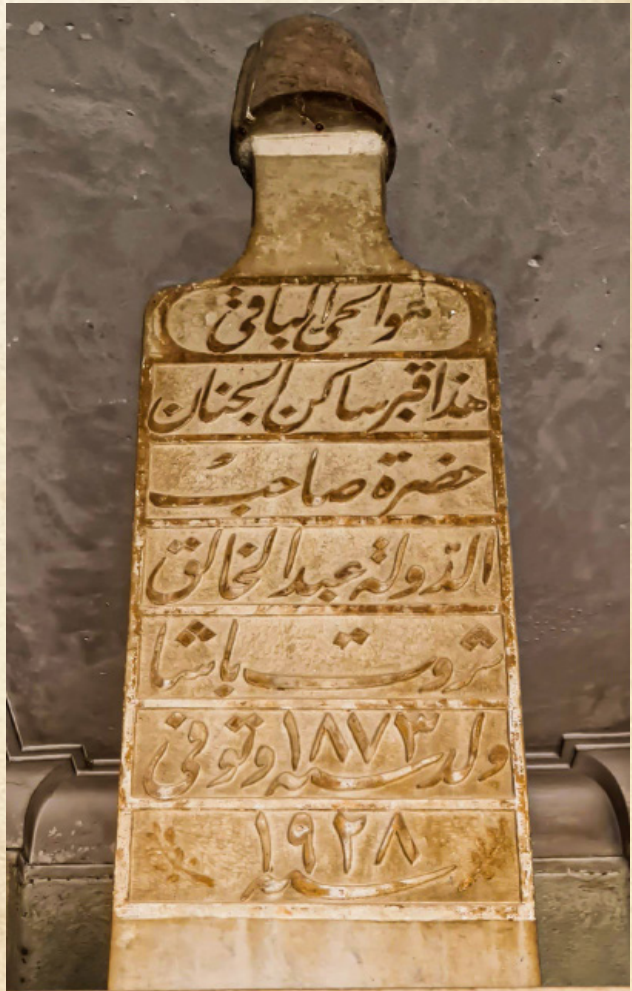 هو الحي الباقي
هذا قبر ساكن الجنان
حضرة صاحب
الدولة عبد الخالق
ثروت باشا
ولد سنة ١٨٧٣ وتوفى
سنة ١٩٢٨